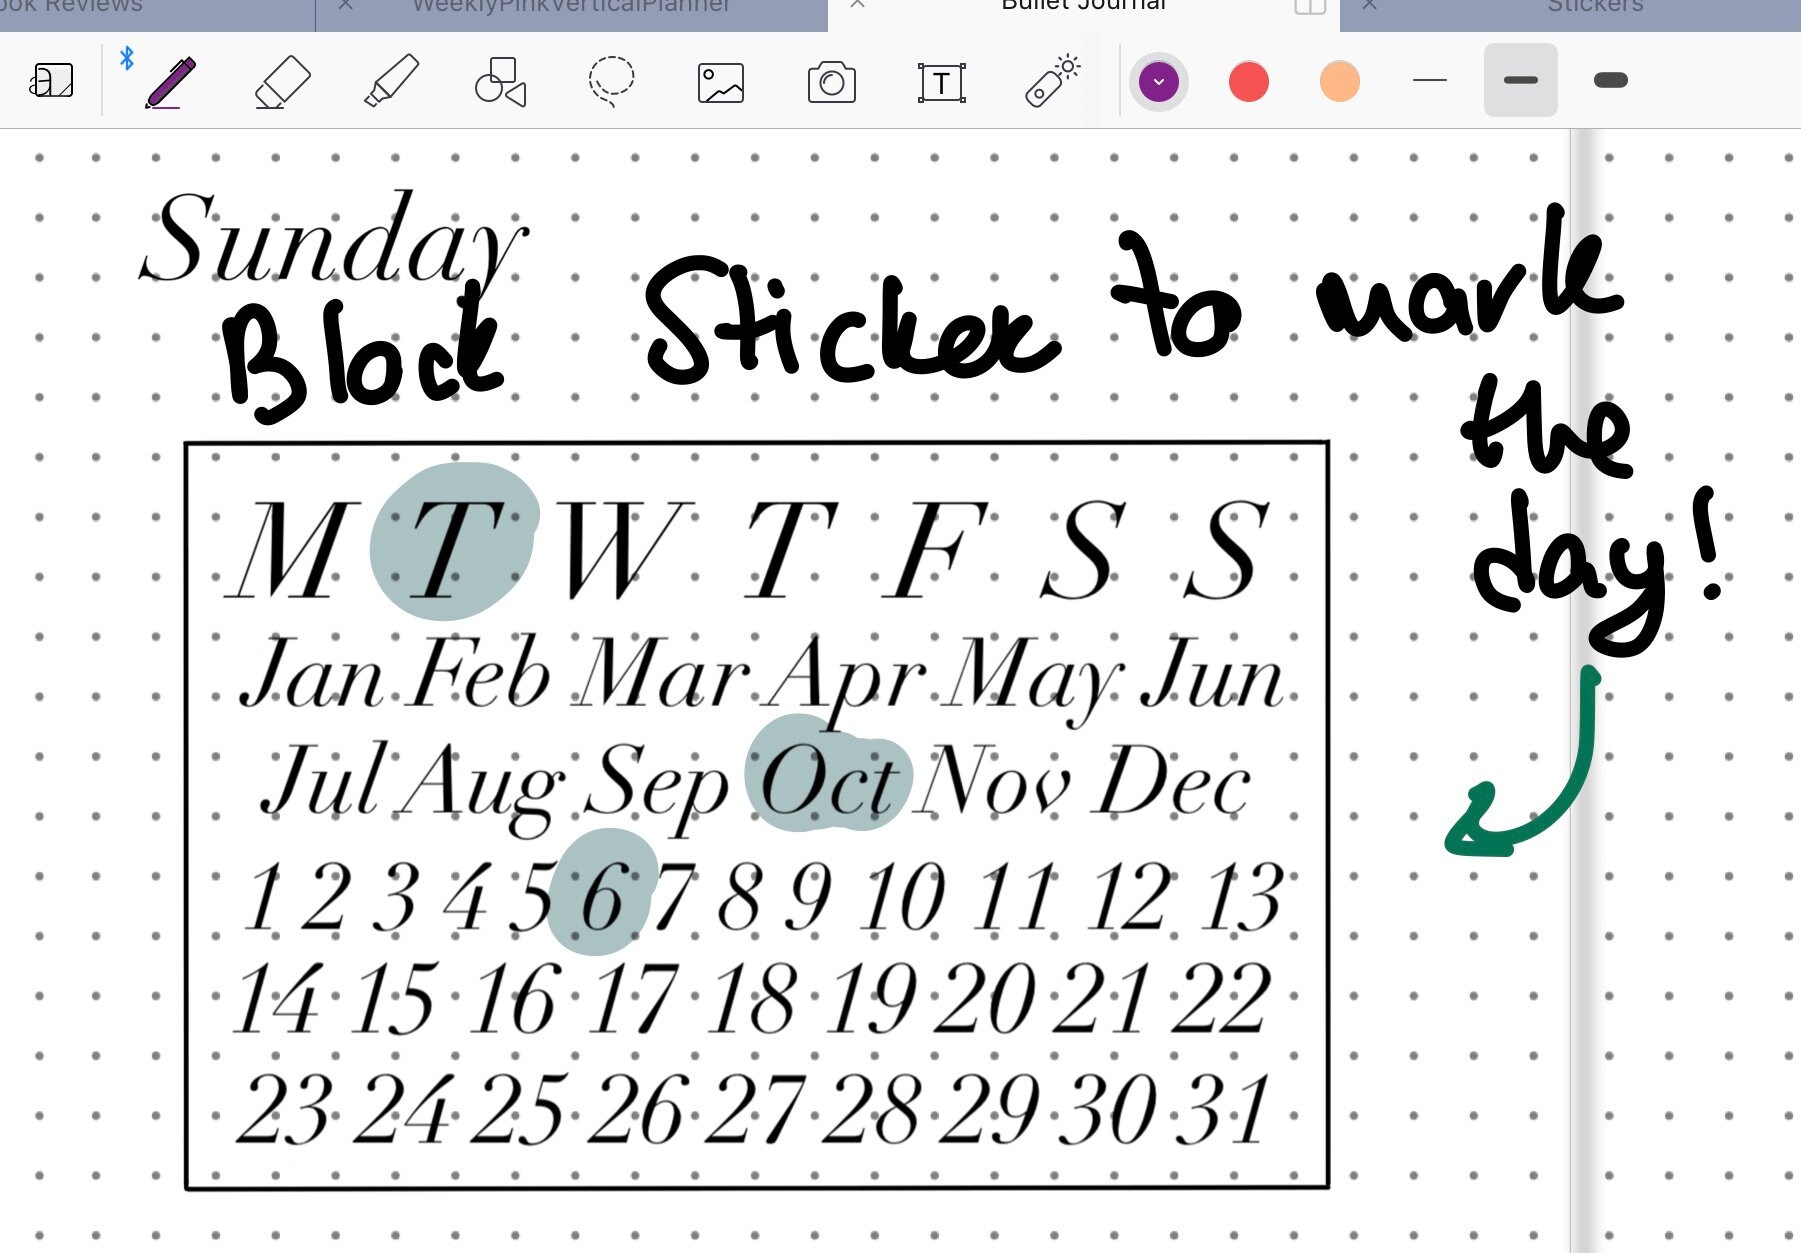 ook Reviews
WeeklyPinkVerticalPlanner
Bullet Journal
Stickers
T
Sunday
Block Sticker to mark
the
day!
M T W T F S S
Jan Feb Mar Apr May Jun
Jul Aug Sep Oct Nov Dec
1 2 3 4 5 6 7 8 9 10 11 12 13
14 15 16 17 18 19 20 21 22
23 24 25 26 27 28 29 30 31